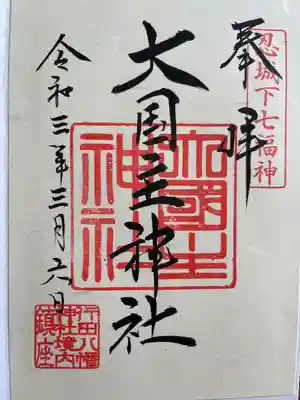 忍城下七福神
奉拝
大国主神社
大國主
神社
令和三年三月六日
行田八幡
神社境内
鎮座